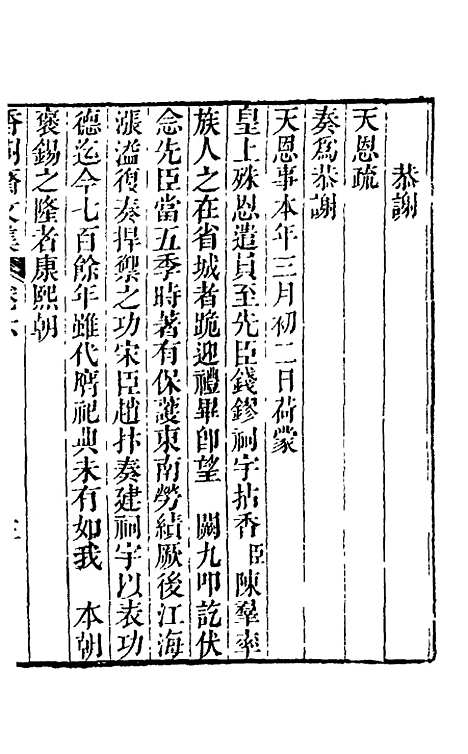 恭謝
天恩疏
奏爲恭謝
天恩事本年三月初二日荷蒙
皇上殊恩遣員至先臣錢鏐祠宇拈香臣陳羣率
族人之在省城者跪迎禮畢卽望　闕九叩訖伏
念先臣當五季時著有保護東南勞績厥後江海
漲溢復奏捍禦之功宋臣趙抃奏建祠宇以表功
德迄今七百餘年雖代膺祀典未有如我　本朝
褒錫之隆者康熙朝
香樹齋文集　卷六　三